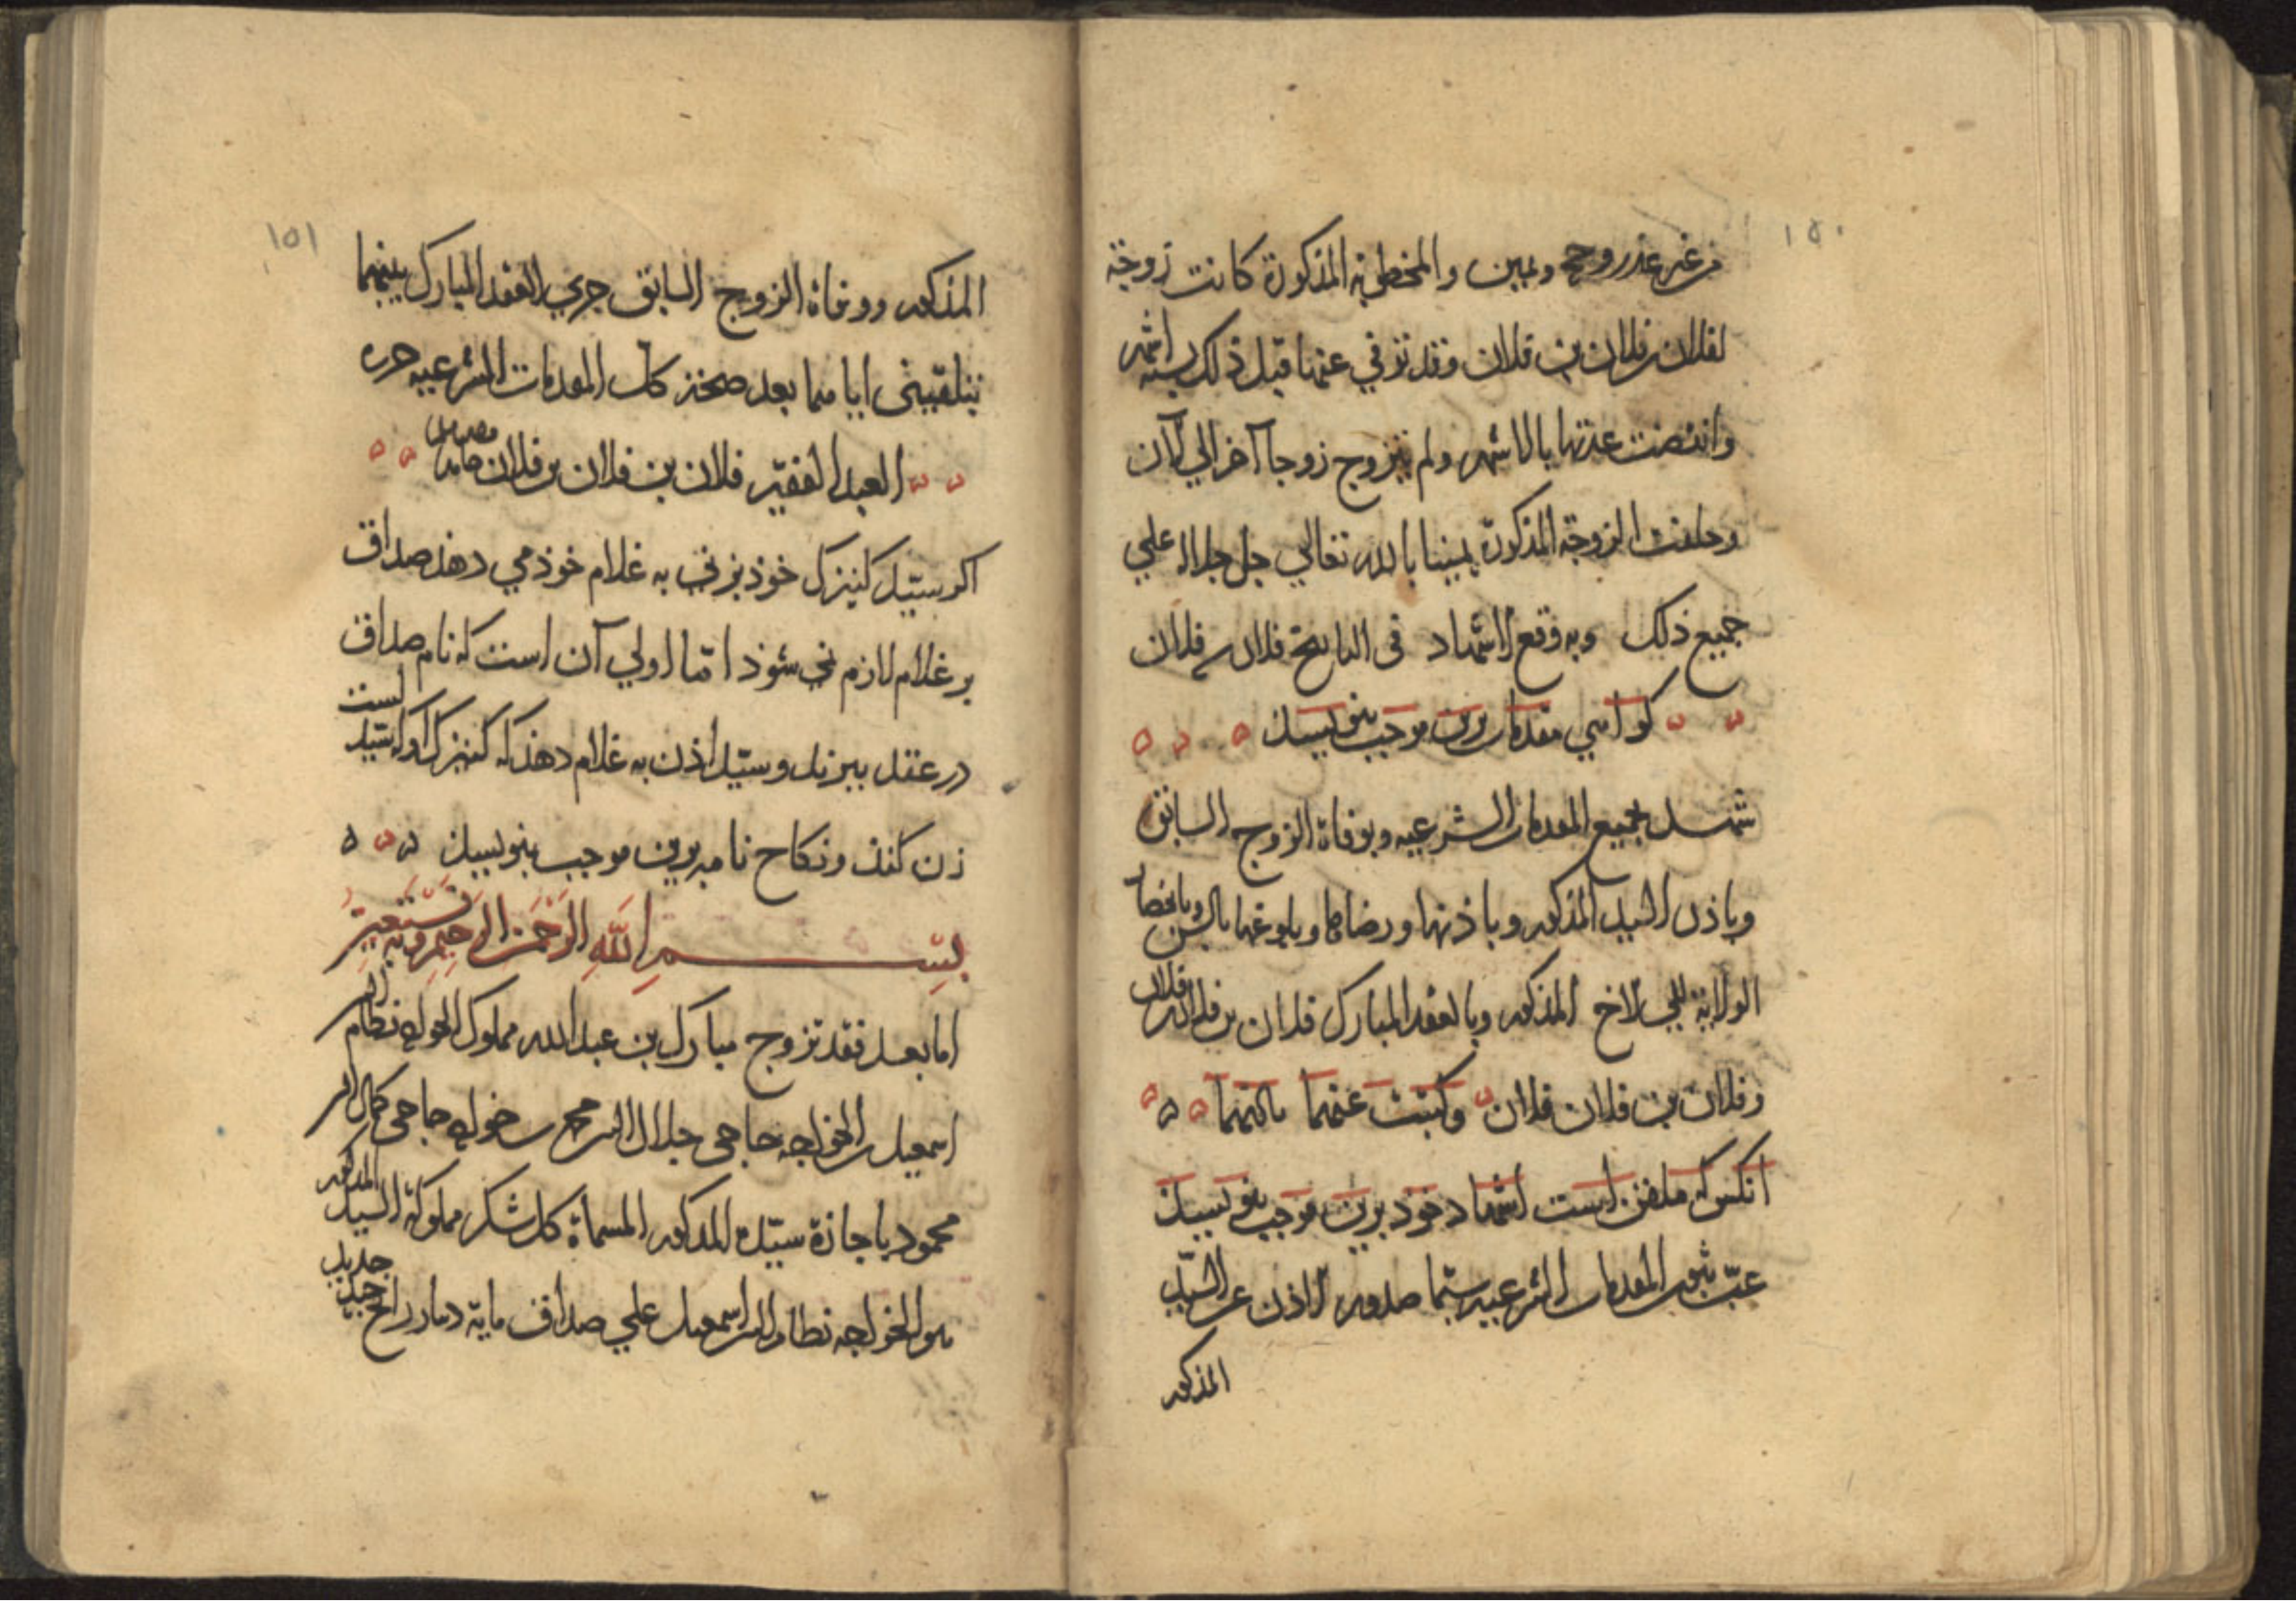 ١٥٠
من غير عذر وحج ويمين والمخطوبة المذكورة كانت زوجة
لفلان بن فلان بن فلان وقد توفي عنها قبل ذلك بستة اشهر
وانقضت عدتها بالاشهر ولم تتزوج زوجا آخر الي الآن
وحلفت الزوجة المذكورة يمينا بالله تعالي جل جلاله علي
جميع ذلك وبه وقع الاشهاد في التاريخ فلان بن فلان
كواهي مقدمات برين موجب بنويسند
شهد بجميع المقدمات الشرعيه وبوفاة الزوج السابق
وباذن السيد المذكور وباذنها ورضاها وبلوغها بالسن وبانحصار
الولاية للي الاخ المذكور وبالعقد المبارك فلان بن فلان بن فلان
وفلان بن فلان فلان وكتبت عنهما باذنهما
آنكس كه ملقن است اشهاد خود برين موجب بنويسند
غب ثبوت المقدمات الشرعيه سيما صدور الاذن عن السيد
المذكور
١٥١
المذكور ووفاة الزوج السابق جري العقد المبارك بينهما
بتلقيني اياهما بعد صحة كل المقدمات الشرعيه حرره
العبد الفقير فلان بن فلان بن فلان حامدا مصليا
اكر سيد كنيزك خوذ بزني به غلام خوذ مي دهذ صداق
بر غلام لازم نمي شوذ اما اولي آن است كه نام صداق
در عقد ببرند وسيد اذن به غلام دهذ كه كنيزك او را است
زن كنذ ونكاح نامه برين موجب بنويسند
بسم الله الرحمن الرحيم وبه نستعين
اما بعد فقد تزوج مبارك بن عبد الله مملوك الخواجه نظام الدين
اسمعيل بن الخواجه حاجي جلال الدين محمد بن خواجه حاجي كمال الدين
محمود باجازة سيده المذكور المسماة كل شكر مملوكة السيد المذكور
هو الخواجه نظام الدين اسمعيل علي صداق ماية دينار رايج جديد